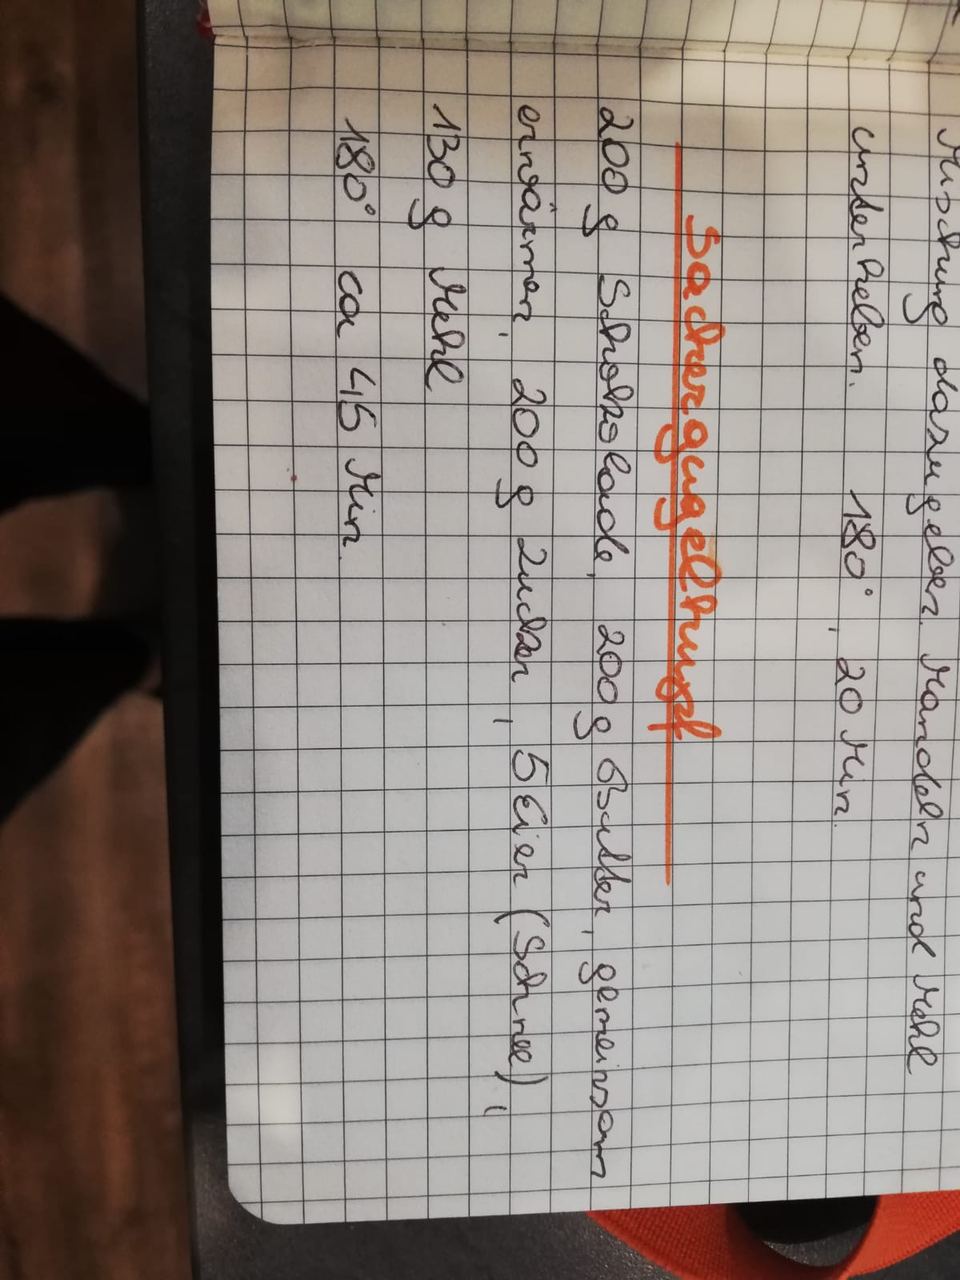 Mischung dazugeben. Mandeln und Mehl
unterheben. 180°, 20 Min.
Sachergugelhupf
200 g Schokolade, 200 g Butter, gemeinsam
erwärmen, 200 g Zucker, 5 Eier (Schnee),
130 g Mehl
180° ca 45 Min.